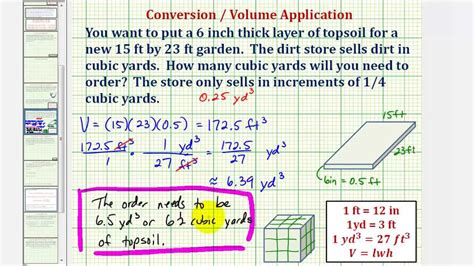 Conversion / Volume Application
You want to put a 6 inch thick layer of topsoil for a
new 15 ft by 23 ft garden. The dirt store sells dirt in
cubic yards. How many cubic yards will you need to
order? The store only sells in increments of 1/4
cubic yards. 0.25 yd³
V = (15)(23)(0.5) = 172.5 ft³
172.5 ft³/1 · 1 yd³/27 ft³ = 172.5/27 yd³
≈ 6.39 yd³
The order needs to be
6.5 yd³ or 6½ cubic yards
of topsoil.
15ft
23ft
6in = 0.5 ft
1 ft = 12 in
1yd = 3 ft
1 yd³ = 27 ft³
V = lwh